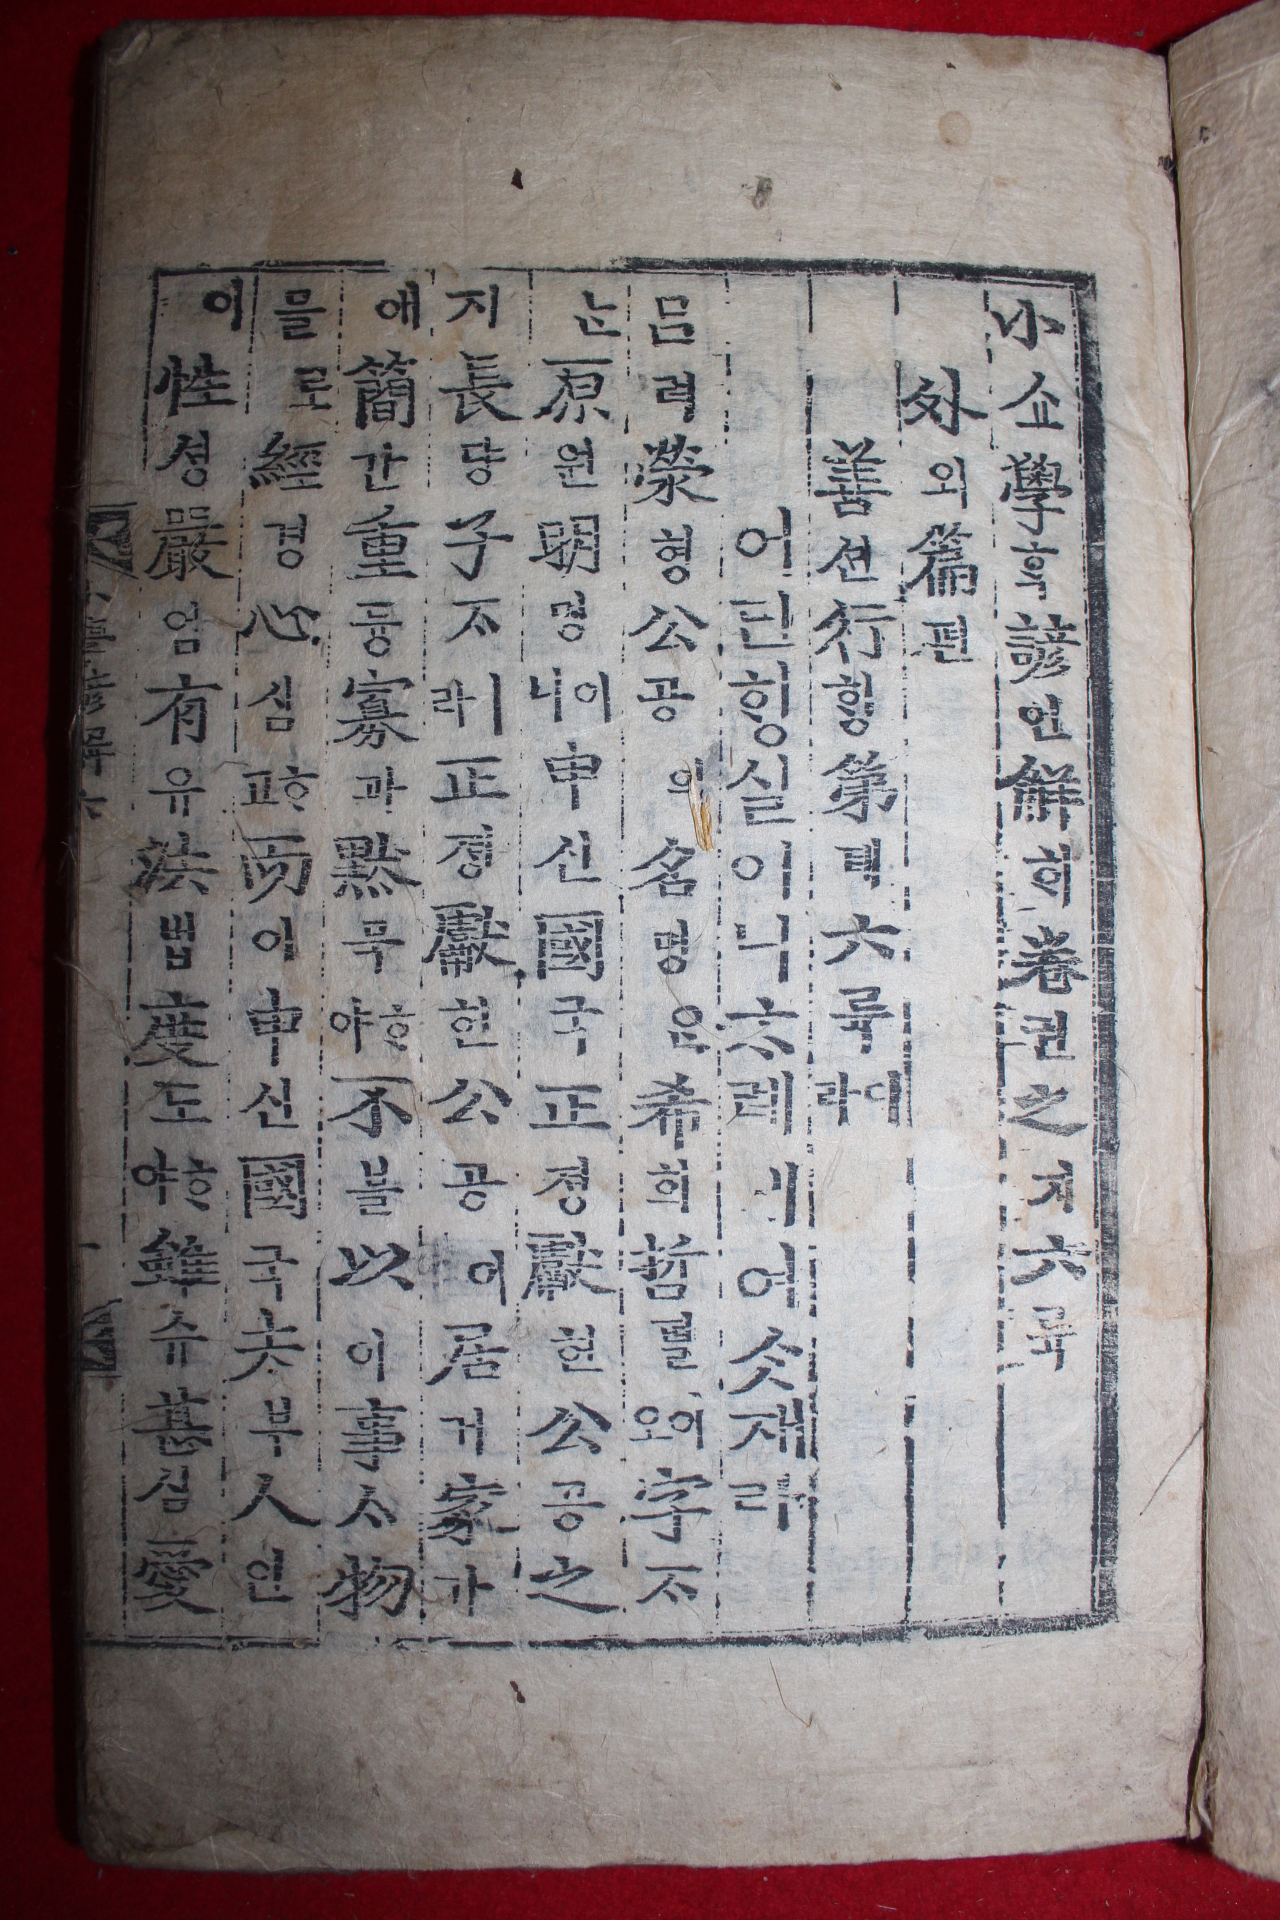 小쇼學ᄒᆞᆨ諺언解ᄒᆡ卷권之지六륙
外외篇편
善션行ᄒᆡᆼ第뎨六륙이라
어딘ᄒᆡᆼ실이니ᄎᆞ례예여슷재라
呂려滎형公공의名명은希희哲텰이오字ᄌᆞ
ᄂᆞᆫ原원明명이니申신國국正졍獻헌公공之
지長댱子ᄌᆞㅣ라正졍獻헌公공이居거家가
애簡간重듕寡과默묵ᄒᆞ야不블以이事ᄉᆞ物
믈로經경心심ᄒᆞ고而이申신國국夫부人인
이性셩嚴엄有유法법度도ᄒᆞ야雖슈甚심愛